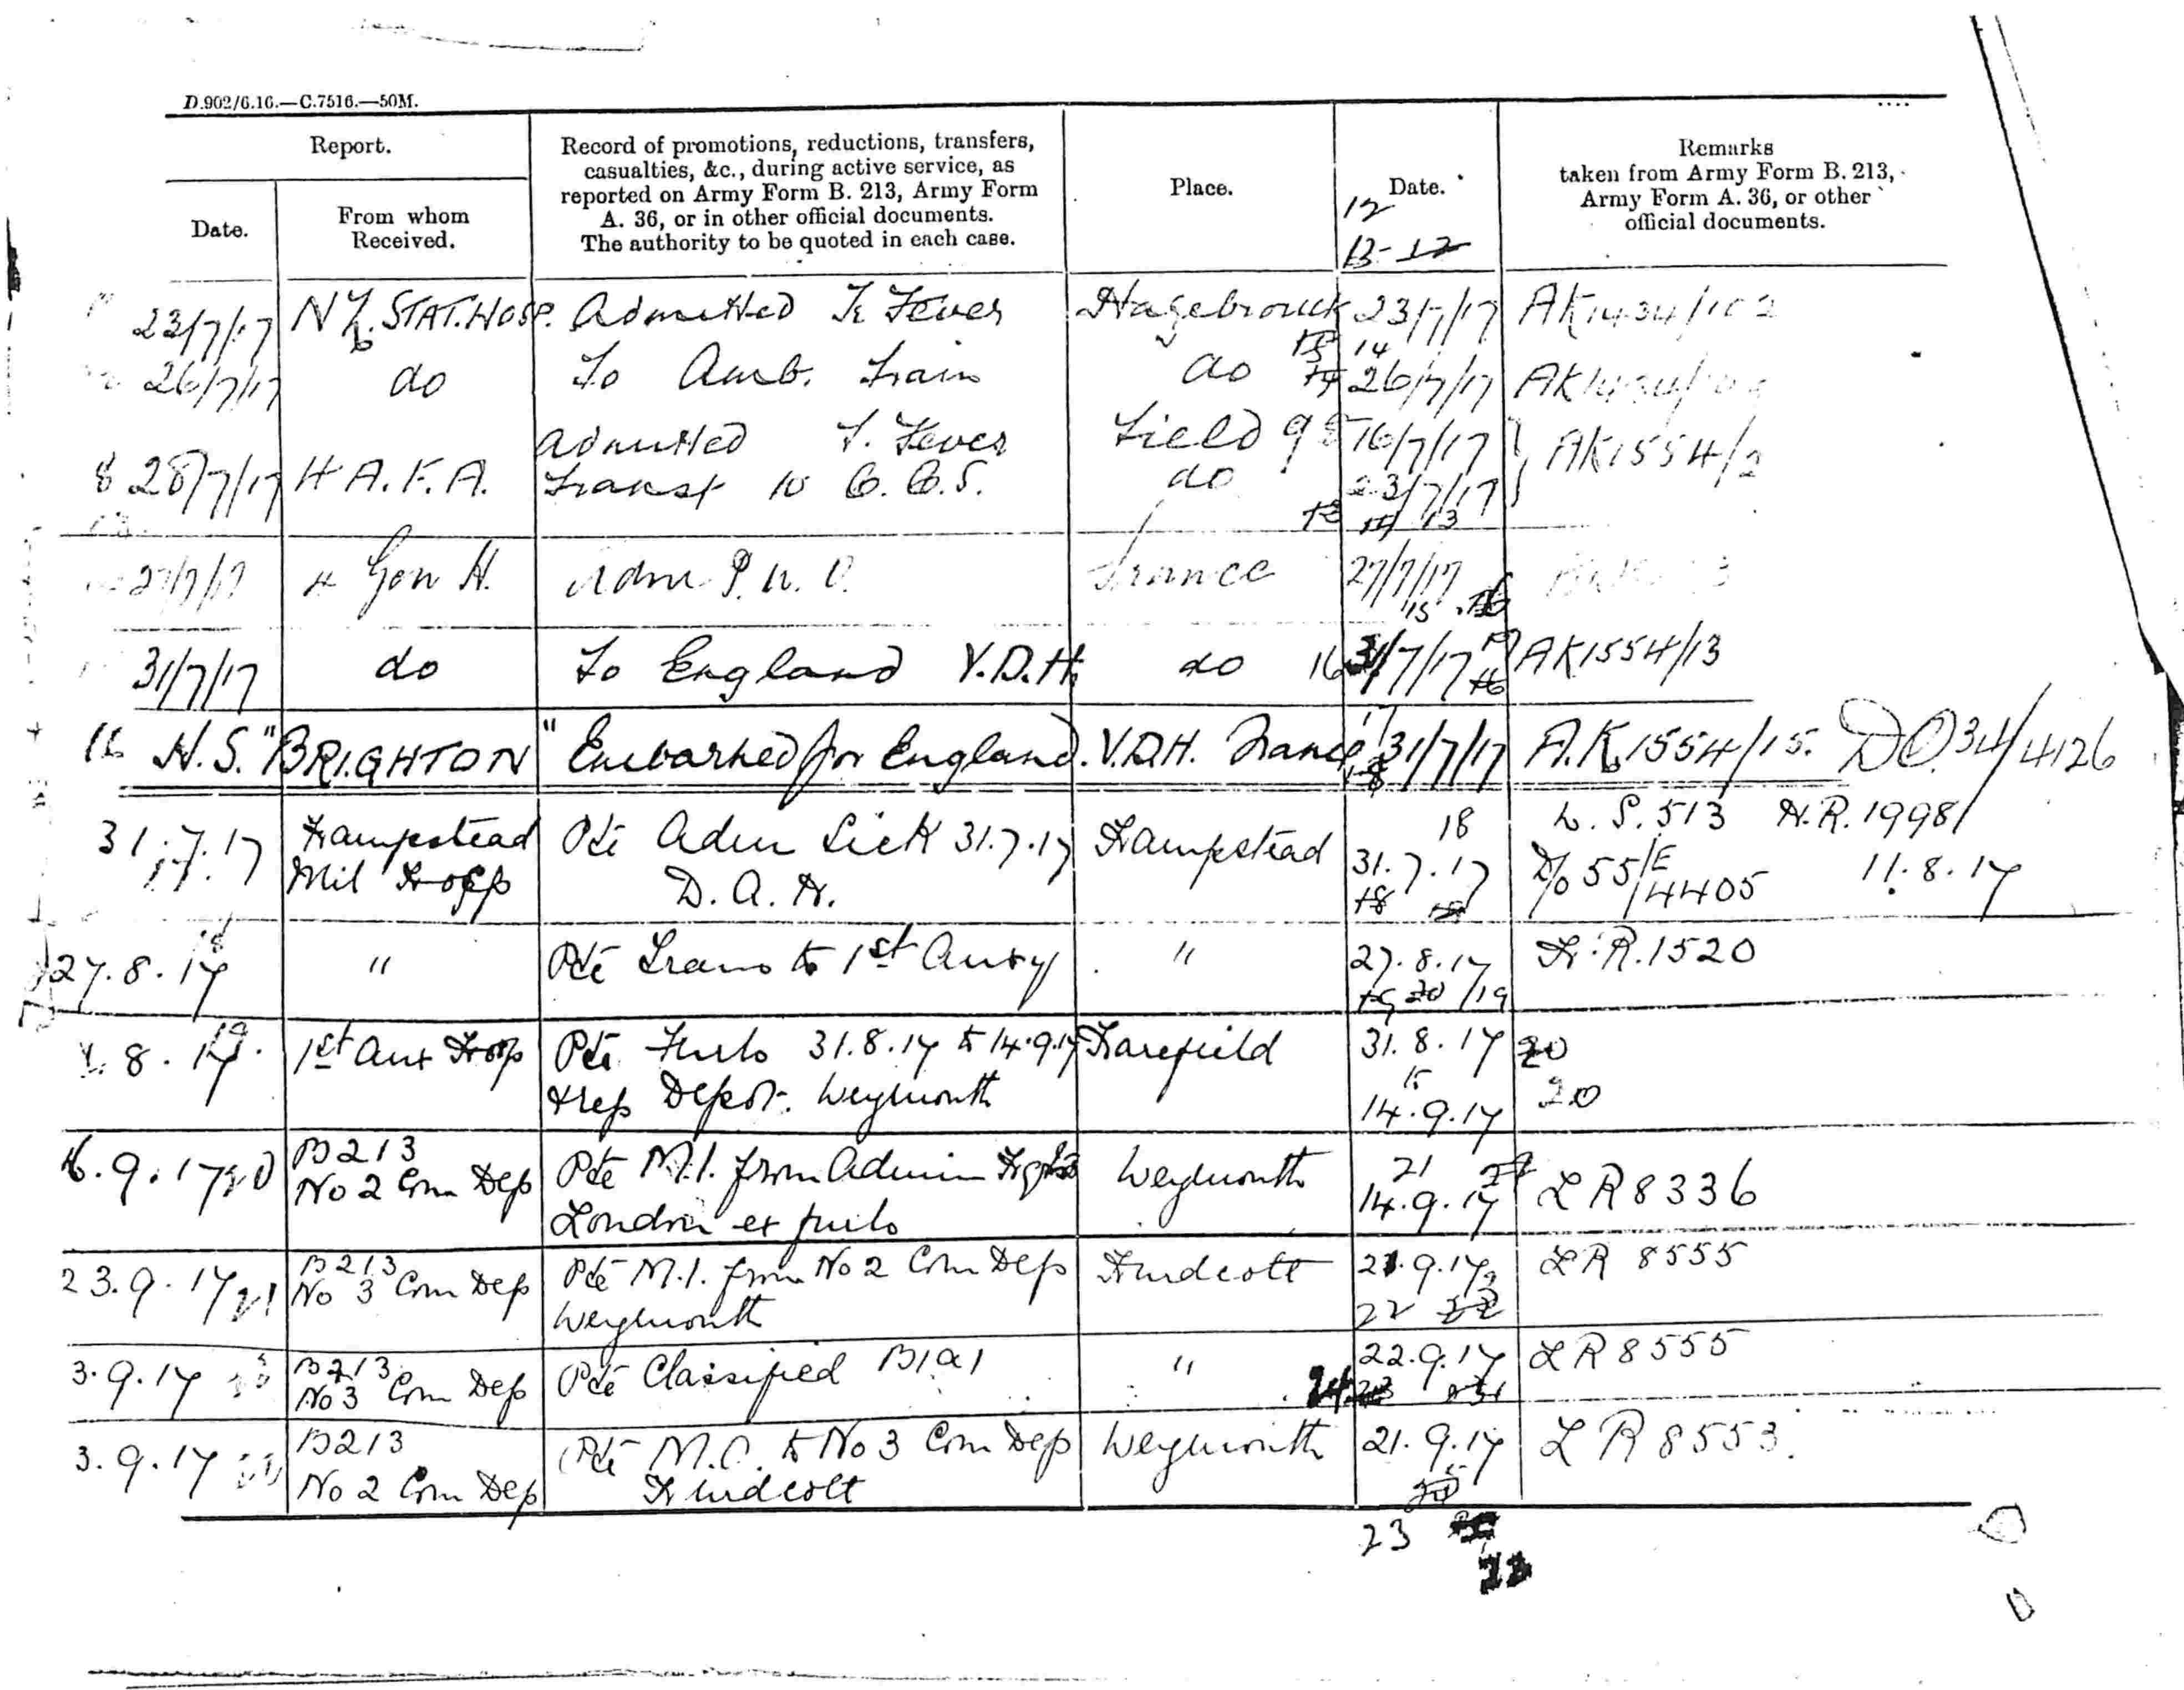 D.902/6.16.—C.7516.—50M.
Report.
Record of promotions, reductions, transfers,
casualties, &c., during active service, as
reported on Army Form B. 213, Army Form
A. 36, or in other official documents.
The authority to be quoted in each case.
Place.
Date.
Remarks
taken from Army Form B. 213,
Army Form A. 36, or other
official documents.
Date.
From whom
Received.
12
13 12
23/7/17 NZ. STAT. HOSP. Admitted Tr Fever Hazebrouck 23/7/17 AK1434/102
13 14
26/7/17 do To Amb. Train do 14 26/7/17
Admitted T. Fever Field 9 8 16/7/17 AK1554/2
8 28/7/17 4 A.F.A. Transf to C.C.S. do 23/7/17
13 14 13
27/7/17 4 Gen H. Adm P.U.O. France 27/7/17
15 16
31/7/17 do To England V.D.H. do 16 31/7/17 16 AK1554/13
16 H.S. "BRIGHTON" Embarked for England. V.D.H. France 17 31/7/17 A.K.1554/15. DO.34/4126
18
31.7.17 Hampstead Pte Adm Sick 31.7.17 Hampstead 18 L.S.513 H.R.1998
17 Mil Hosp D.A.H. 31.7.17 D/o 55/E/4405 11.8.17
18
27.8.17 18 " Pte Trans to 1st Auxy " 27.8.17 H.R.1520
19 20 19
8.17 19. 1st Aux Hosp Pte Furlo 31.8.17 to 14.9.17 Harefield 31.8.17 20
&rep Depot. Weymouth to 14.9.17 20
6.9.17 20 B213 Pte M.I. from Admin Hqrs Weymouth 21 LR8336
No 2 Com Dep London ex furlo 14.9.17
23.9.17 21 B213 Pte M.I. from No 2 Com Dep Hurdcott 21.9.17 LR 8555
No 3 Com Dep Weymouth 22 22
3.9.17 B213 Pte Classified B1a1 " 22.9.17 LR8555
No 3 Com Dep 24 23
3.9.17 B213 Pte M.O. to No 3 Com Dep Weymouth 21.9.17 LR8553.
No 2 Com Dep Hurdcott
23
23